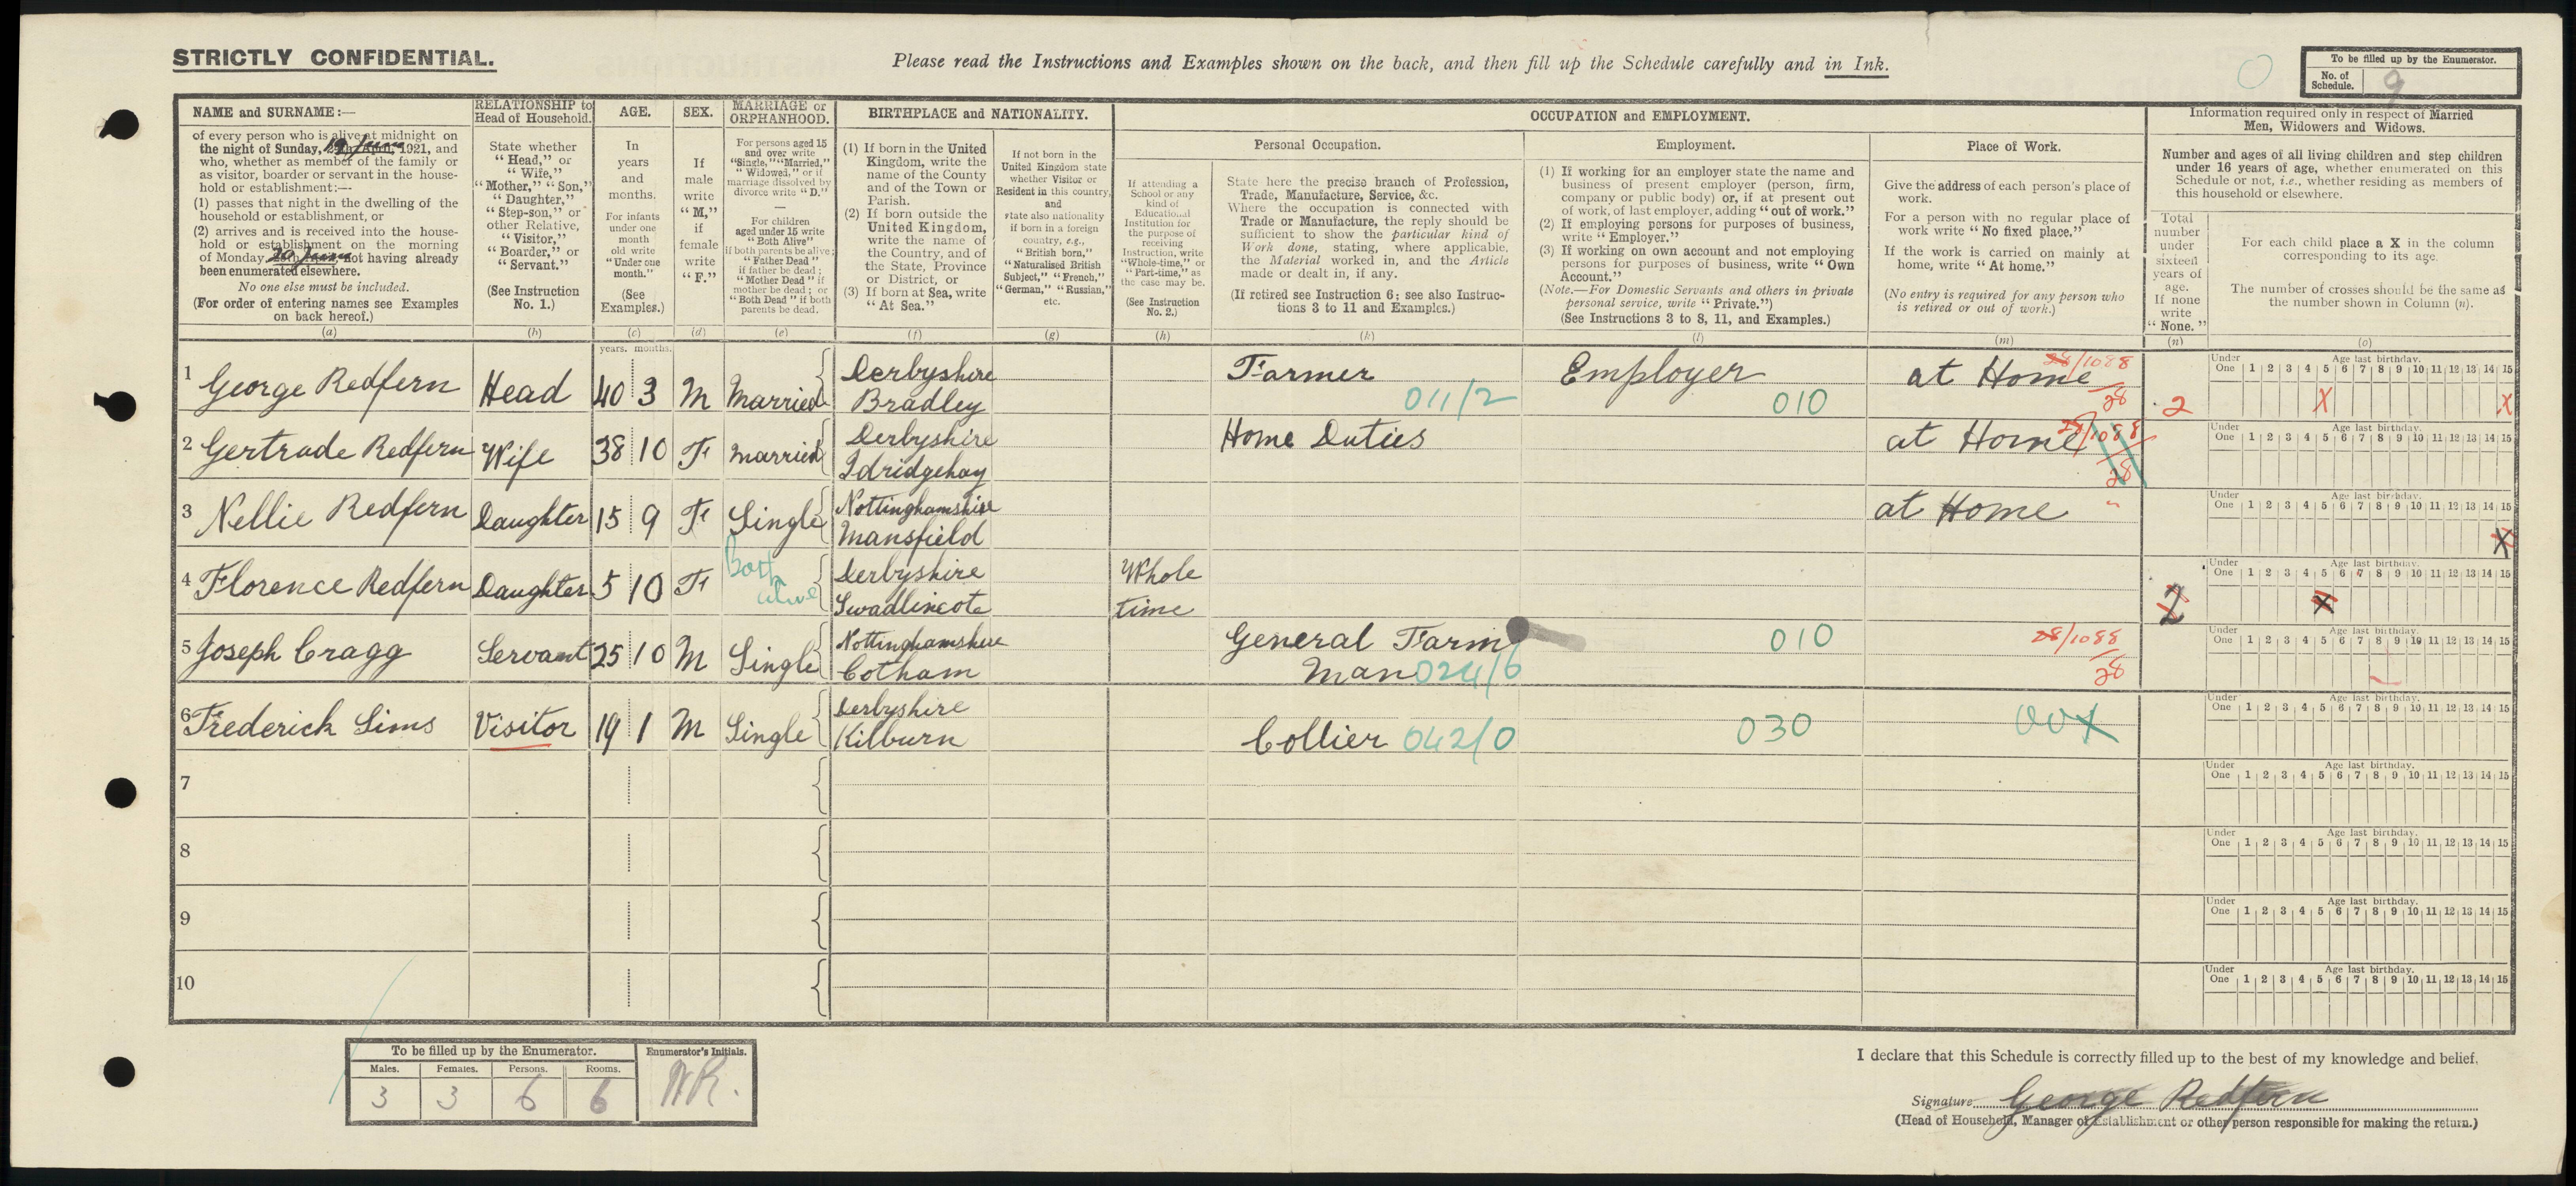 STRICTLY CONFIDENTIAL.
Please read the Instructions and Examples shown on the back, and then fill up the Schedule carefully and in Ink.
To be filled up by the Enumerator.
No. of Schedule. 9
NAME and SURNAME:—
of every person who is alive at midnight on
the night of Sunday, 19 June 1921, and
who, whether as member of the family or
as visitor, boarder or servant in the house-
hold or establishment:—
(1) passes that night in the dwelling of the
household or establishment, or
(2) arrives and is received into the house-
hold or establishment on the morning
of Monday 20 June not having already
been enumerated elsewhere.
No one else must be included.
(For order of entering names see Examples
on back hereof.)
(a)
RELATIONSHIP to
Head of Household.
State whether
"Head," or
"Wife,"
"Mother," "Son,"
"Daughter,"
"Step-son," or
other Relative,
"Visitor,"
"Boarder," or
"Servant."
(See Instruction
No. 1.)
(b)
AGE.
In
years
and
months.
For infants
under one
month
old write
"Under one
month."
(See
Examples.)
(c)
SEX.
If
male
write
"M,"
if
female
write
"F."
(d)
MARRIAGE or
ORPHANHOOD.
For persons aged 15
and over write
"Single," "Married,"
"Widowed," or if
marriage dissolved by
divorce write "D."
—
For children
aged under 15 write
"Both Alive"
if both parents be alive;
"Father Dead"
if father be dead;
"Mother Dead" if
mother be dead; or
"Both Dead" if both
parents be dead.
(e)
BIRTHPLACE and NATIONALITY.
(1) If born in the United
Kingdom, write the
name of the County
and of the Town or
Parish.
(2) If born outside the
United Kingdom,
write the name of
the Country, and of
the State, Province
or District, or
(3) If born at Sea, write
"At Sea."
(f)
If not born in the
United Kingdom state
whether Visitor or
Resident in this country,
and
state also nationality
if born in a foreign
country, e.g.,
"British born,"
"Naturalised British
Subject," "French,"
"German," "Russian,"
etc.
(g)
OCCUPATION and EMPLOYMENT.
If attending a
School or any
kind of
Educational
Institution for
the purpose of
receiving
Instruction, write
"Whole-time," or
"Part-time," as
the case may be.
(See Instruction
No. 2.)
(h)
Personal Occupation.
State here the precise branch of Profession,
Trade, Manufacture, Service, &c.
Where the occupation is connected with
Trade or Manufacture, the reply should be
sufficient to show the particular kind of
Work done, stating, where applicable,
the Material worked in, and the Article
made or dealt in, if any.
(If retired see Instruction 6; see also Instruc-
tions 3 to 11 and Examples.)
(k)
Employment.
(1) If working for an employer state the name and
business of present employer (person, firm,
company or public body) or, if at present out
of work, of last employer, adding "out of work."
(2) If employing persons for purposes of business,
write "Employer."
(3) If working on own account and not employing
persons for purposes of business, write "Own
Account."
(Note.—For Domestic Servants and others in private
personal service, write "Private.")
(See Instructions 3 to 8, 11, and Examples.)
(l)
Place of Work.
Give the address of each person's place of
work.
For a person with no regular place of
work write "No fixed place."
If the work is carried on mainly at
home, write "At home."
(No entry is required for any person who
is retired or out of work.)
(m)
Information required only in respect of Married
Men, Widowers and Widows.
Number and ages of all living children and step children
under 16 years of age, whether enumerated on this
Schedule or not, i.e., whether residing as members of
this household or elsewhere.
Total
number
under
sixteen
years of
age.
If none
write
"None."
(n)
For each child place a X in the column
corresponding to its age.
The number of crosses should be the same as
the number shown in Column (n).
(o)
years. months.
1 George Redfern Head 40 3 M Married Derbyshire Bradley Farmer 011/2 Employer 010 at Home 28/1088 28 2
Under One 1 2 3 4 5 6 7 8 9 10 11 12 13 14 15 Age last birthday. X X
2 Gertrude Redfern Wife 38 10 F Married Derbyshire Idridgehay Home Duties at Home 28/1088 28
Under One 1 2 3 4 5 6 7 8 9 10 11 12 13 14 15 Age last birthday.
3 Nellie Redfern Daughter 15 9 F Single Nottinghamshire Mansfield at Home
Under One 1 2 3 4 5 6 7 8 9 10 11 12 13 14 15 Age last birthday. X
4 Florence Redfern Daughter 5 10 F Both alive Derbyshire Swadlincote Whole time 2
Under One 1 2 3 4 5 6 7 8 9 10 11 12 13 14 15 Age last birthday. X
5 Joseph Cragg Servant 25 10 M Single Nottinghamshire Cotham General Farm Man 024/6 010 28/1088 28
Under One 1 2 3 4 5 6 7 8 9 10 11 12 13 14 15 Age last birthday.
6 Frederick Sims Visitor 19 1 M Single Derbyshire Kilburn Collier 042/0 030 00X
Under One 1 2 3 4 5 6 7 8 9 10 11 12 13 14 15 Age last birthday.
7
Under One 1 2 3 4 5 6 7 8 9 10 11 12 13 14 15 Age last birthday.
8
Under One 1 2 3 4 5 6 7 8 9 10 11 12 13 14 15 Age last birthday.
9
Under One 1 2 3 4 5 6 7 8 9 10 11 12 13 14 15 Age last birthday.
10
Under One 1 2 3 4 5 6 7 8 9 10 11 12 13 14 15 Age last birthday.
To be filled up by the Enumerator.
Males. Females. Persons. Rooms.
3 3 6 6
Enumerator's Initials.
I declare that this Schedule is correctly filled up to the best of my knowledge and belief.
Signature George Redfern
(Head of Household, Manager of Establishment or other person responsible for making the return.)